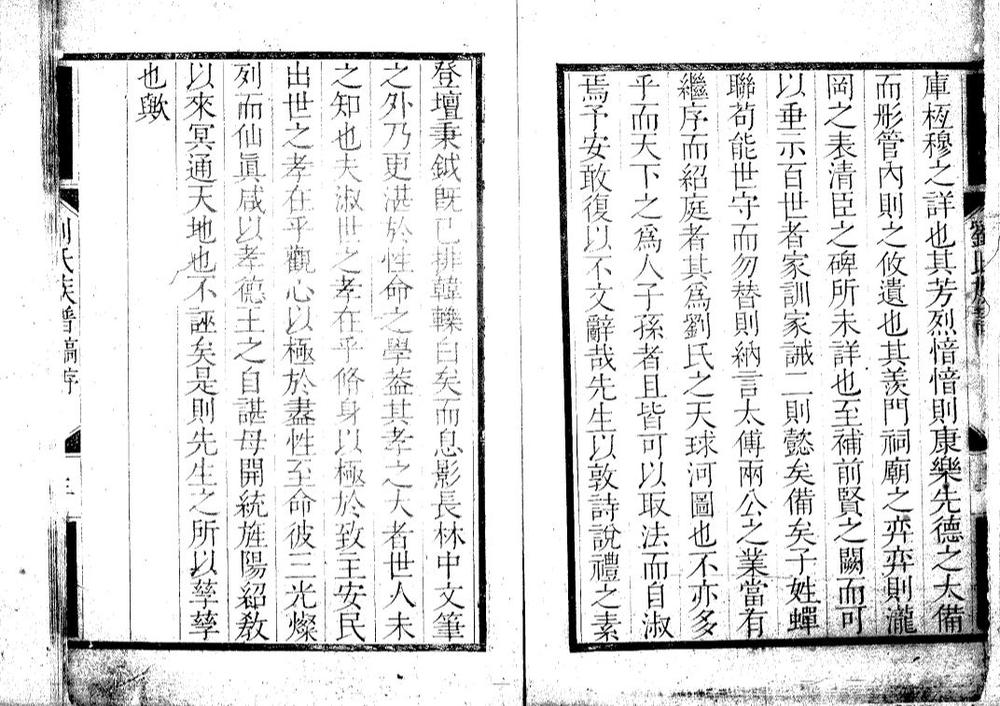 庫恆穆之詳也其芳烈愔愔則康樂先德之大備
而彤管內則之攸遺也其羨門祠廟之弈弈則瀧
岡之表清臣之碑所未詳也至補前賢之闕而可
以垂示百世者家訓家誡二則懿矣備矣子姓蟬
聯苟能世守而勿替則納言太傅兩公之業當有
繼序而紹庭者其爲劉氏之天球河圖也不亦多
乎而天下之爲人子孫者且皆可以取法而自淑
焉予安敢復以不文辭哉先生以敦詩說禮之素
劉氏族譜
登壇秉鉞旣已排韓轢白矣而息影長林中文筆
之外乃更湛於性命之學葢其孝之大者世人未
之知也夫淑世之孝在乎脩身以極於致主安民
出世之孝在乎觀心以極於盡性至命彼三光燦
列而仙眞咸以孝德主之自諶母開統旌陽紹敎
以來冥通天地也不誣矣是則先生之所以孳孳
也歟
劉氏族譜稿序